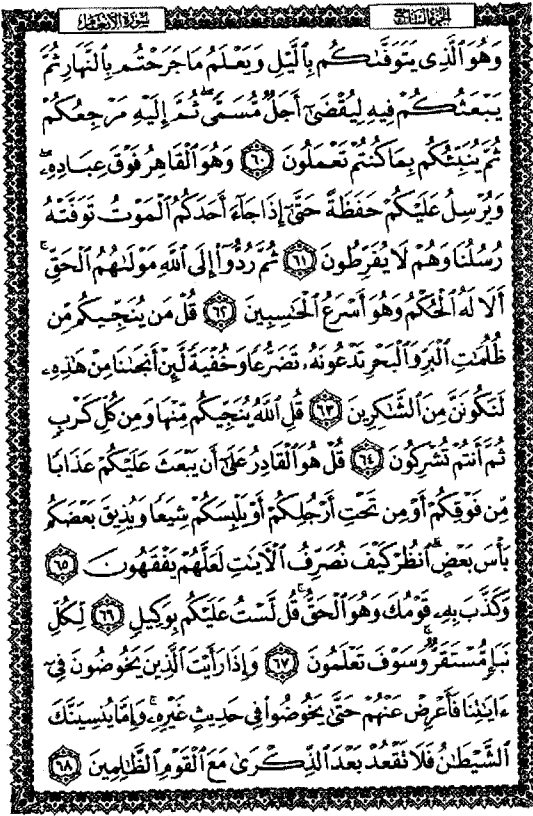 الجزء السابع
سورة الأنعام
وَهُوَ ٱلَّذِى يَتَوَفَّىٰكُم بِٱلَّيْلِ وَيَعْلَمُ مَا جَرَحْتُم بِٱلنَّهَارِ ثُمَّ
يَبْعَثُكُمْ فِيهِ لِيُقْضَىٰٓ أَجَلٌ مُّسَمًّى ۖ ثُمَّ إِلَيْهِ مَرْجِعُكُمْ
ثُمَّ يُنَبِّئُكُم بِمَا كُنتُمْ تَعْمَلُونَ ٦٠ وَهُوَ ٱلْقَاهِرُ فَوْقَ عِبَادِهِۦ ۖ
وَيُرْسِلُ عَلَيْكُمْ حَفَظَةً حَتَّىٰٓ إِذَا جَآءَ أَحَدَكُمُ ٱلْمَوْتُ تَوَفَّتْهُ
رُسُلُنَا وَهُمْ لَا يُفَرِّطُونَ ٦١ ثُمَّ رُدُّوٓا۟ إِلَى ٱللَّهِ مَوْلَىٰهُمُ ٱلْحَقِّ ۚ
أَلَا لَهُ ٱلْحُكْمُ وَهُوَ أَسْرَعُ ٱلْحَٰسِبِينَ ٦٢ قُلْ مَن يُنَجِّيكُم مِّن
ظُلُمَٰتِ ٱلْبَرِّ وَٱلْبَحْرِ تَدْعُونَهُۥ تَضَرُّعًا وَخُفْيَةً لَّئِنْ أَنجَىٰنَا مِنْ هَٰذِهِۦ
لَنَكُونَنَّ مِنَ ٱلشَّٰكِرِينَ ٦٣ قُلِ ٱللَّهُ يُنَجِّيكُم مِّنْهَا وَمِن كُلِّ كَرْبٍ
ثُمَّ أَنتُمْ تُشْرِكُونَ ٦٤ قُلْ هُوَ ٱلْقَادِرُ عَلَىٰٓ أَن يَبْعَثَ عَلَيْكُمْ عَذَابًا
مِّن فَوْقِكُمْ أَوْ مِن تَحْتِ أَرْجُلِكُمْ أَوْ يَلْبِسَكُمْ شِيَعًا وَيُذِيقَ بَعْضَكُم
بَأْسَ بَعْضٍ ۗ ٱنظُرْ كَيْفَ نُصَرِّفُ ٱلْءَايَٰتِ لَعَلَّهُمْ يَفْقَهُونَ ٦٥
وَكَذَّبَ بِهِۦ قَوْمُكَ وَهُوَ ٱلْحَقُّ ۚ قُل لَّسْتُ عَلَيْكُم بِوَكِيلٍ ٦٦ لِّكُلِّ
نَبَإٍ مُّسْتَقَرٌّ ۚ وَسَوْفَ تَعْلَمُونَ ٦٧ وَإِذَا رَأَيْتَ ٱلَّذِينَ يَخُوضُونَ فِىٓ
ءَايَٰتِنَا فَأَعْرِضْ عَنْهُمْ حَتَّىٰ يَخُوضُوا۟ فِى حَدِيثٍ غَيْرِهِۦ ۚ وَإِمَّا يُنسِيَنَّكَ
ٱلشَّيْطَٰنُ فَلَا تَقْعُدْ بَعْدَ ٱلذِّكْرَىٰ مَعَ ٱلْقَوْمِ ٱلظَّٰلِمِينَ ٦٨